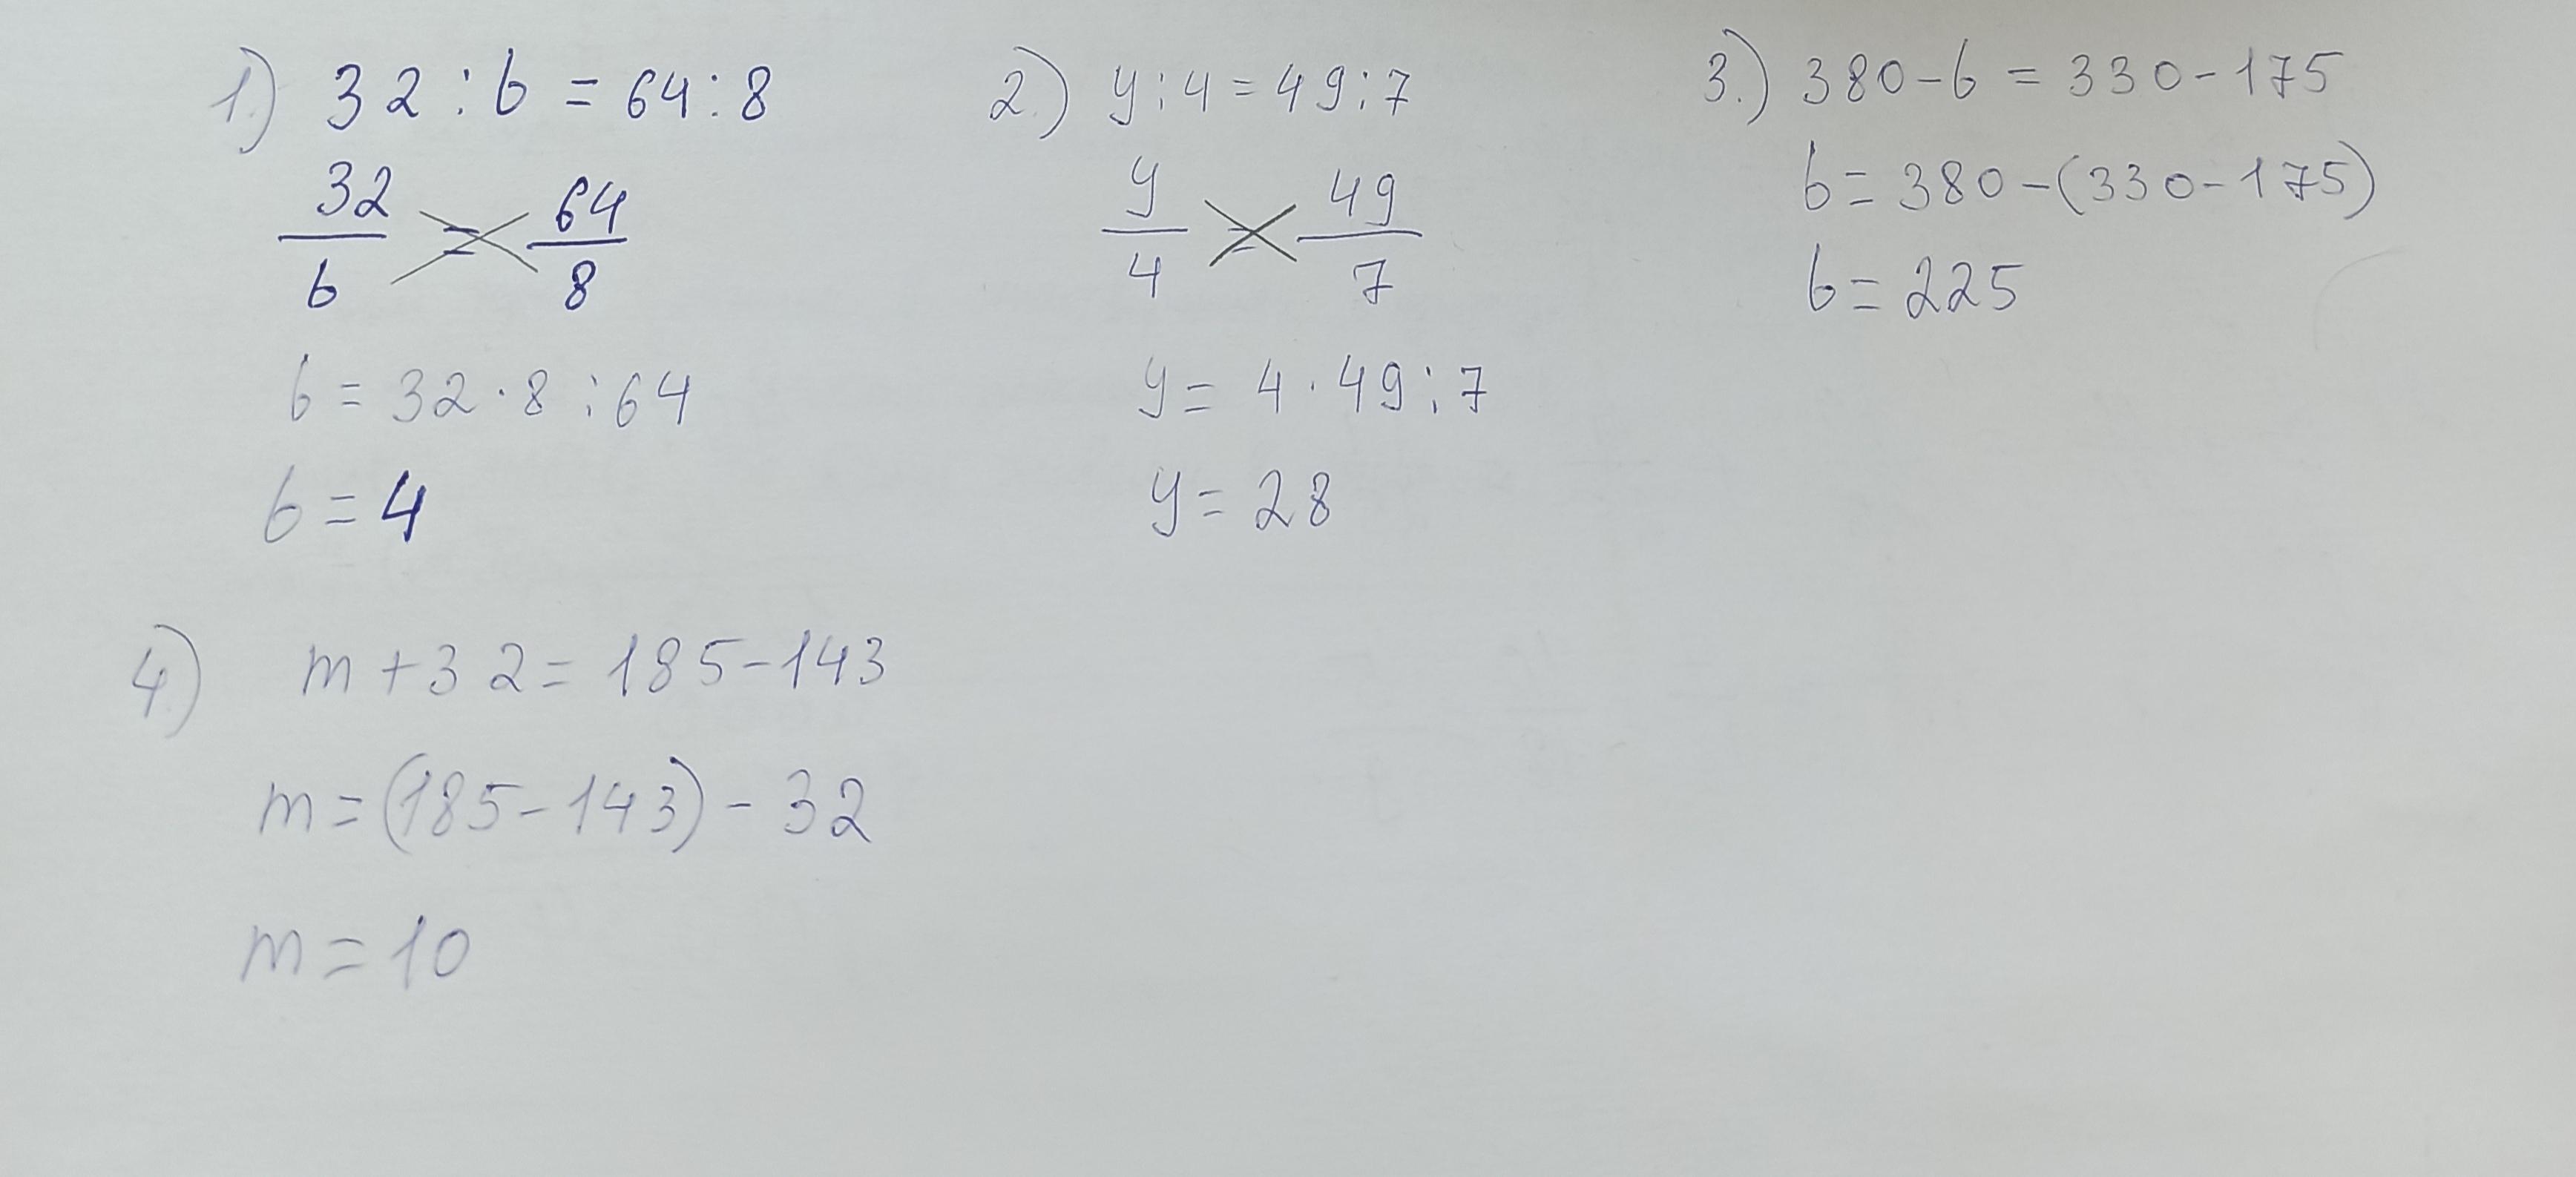 1.) 32 : b = 64 : 8
32/b = 64/8
b = 32 · 8 : 64
b = 4
2.) y : 4 = 49 : 7
y/4 = 49/7
y = 4 · 49 : 7
y = 28
3.) 380 - b = 330 - 175
b = 380 - (330 - 175)
b = 225
4.) m + 32 = 185 - 143
m = (185 - 143) - 32
m = 10